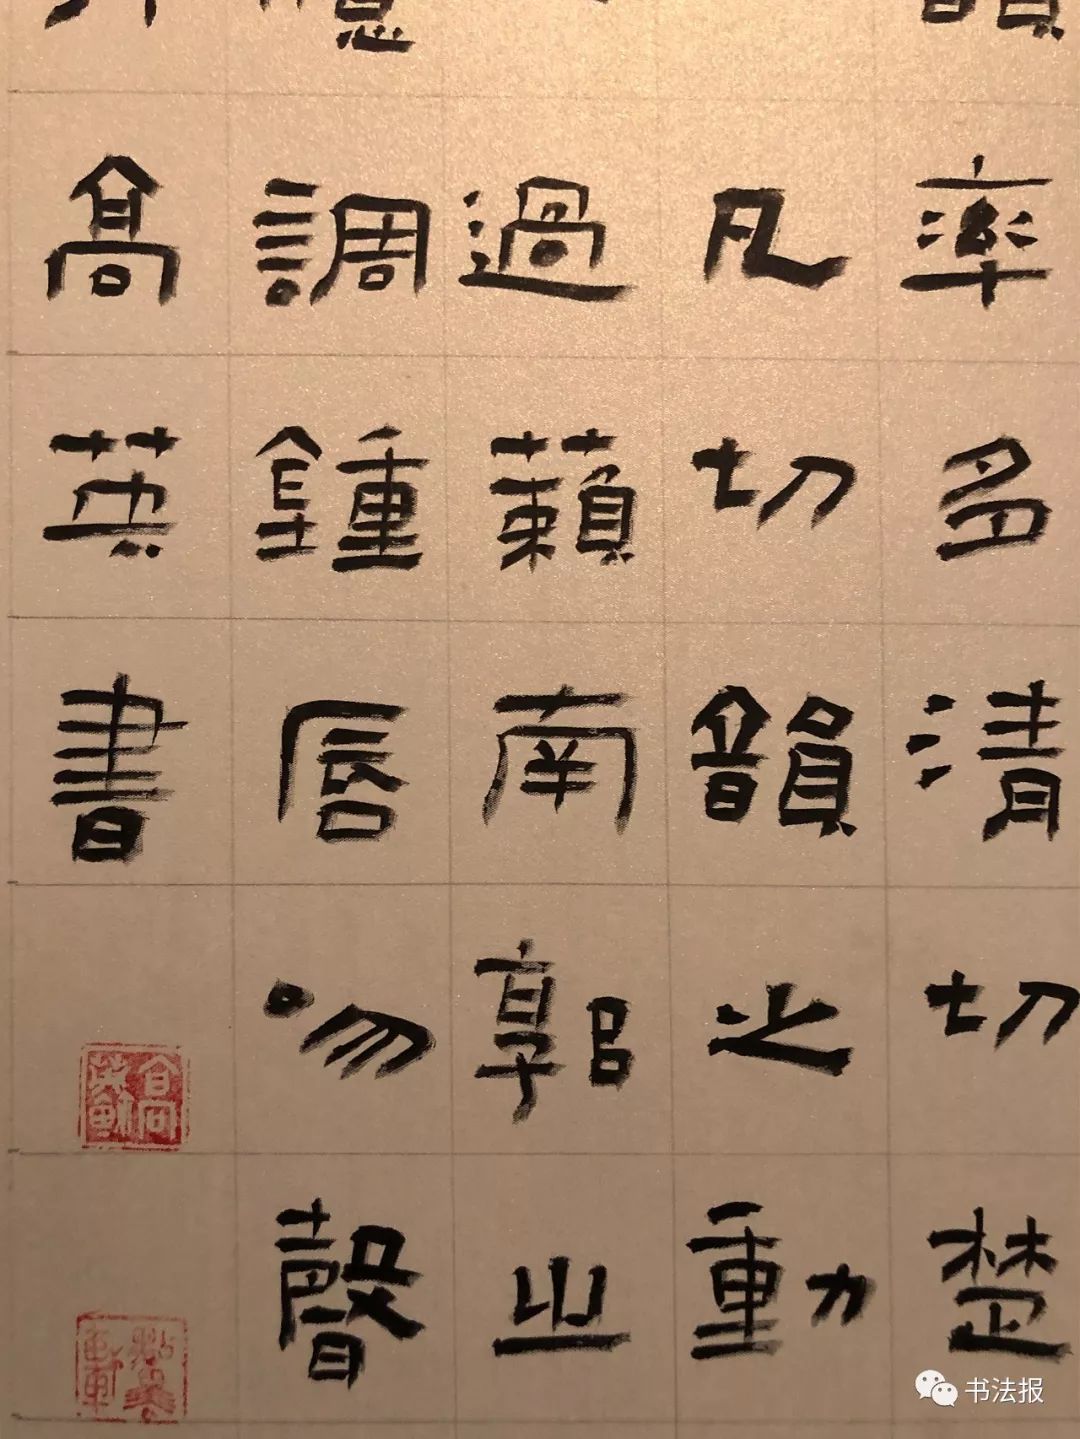 率多清切楚
凡切韻之動
過藾南郭之
調鍾唇吻聲
高英書
书法报